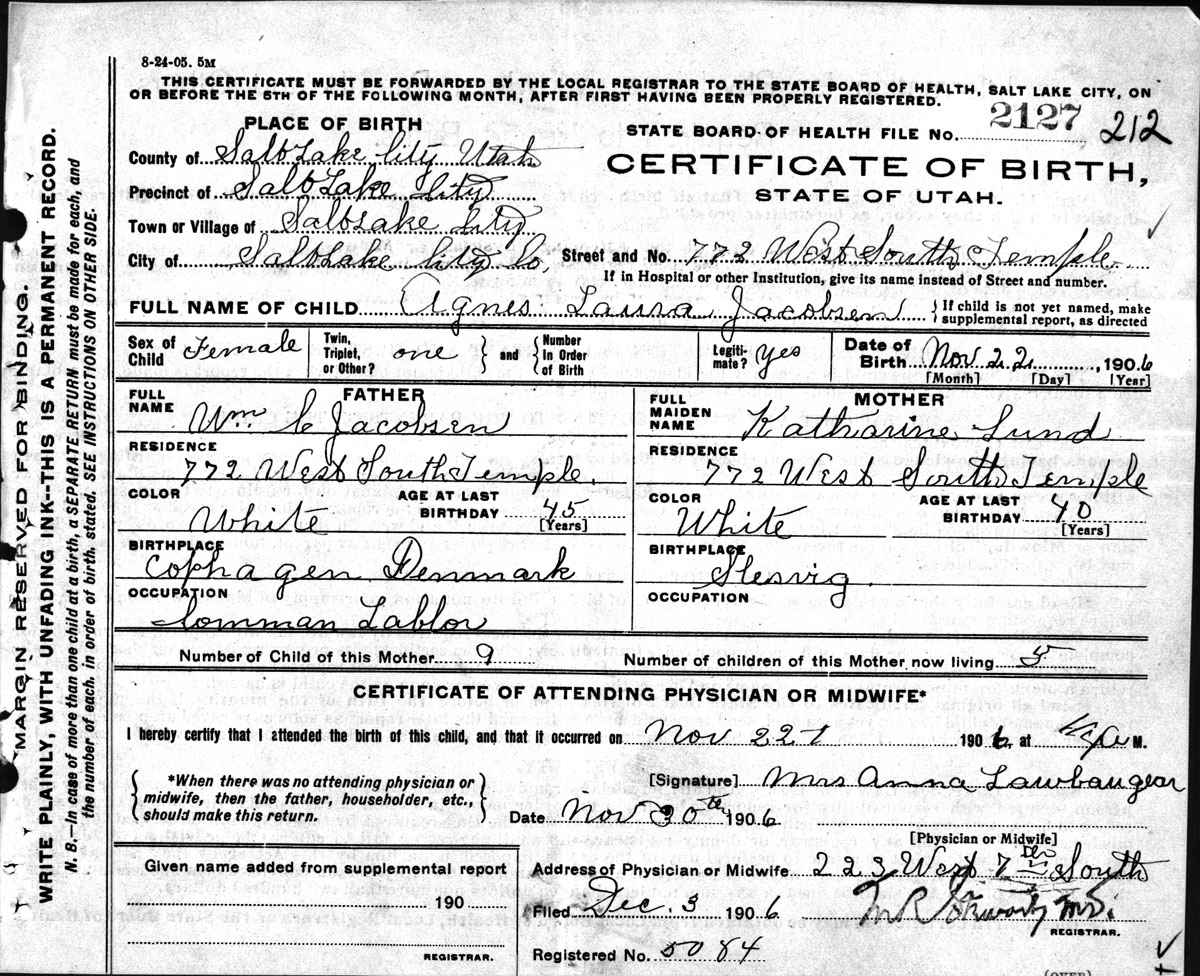 8-24-05. 5M
THIS CERTIFICATE MUST BE FORWARDED BY THE LOCAL REGISTRAR TO THE STATE BOARD OF HEALTH, SALT LAKE CITY, ON
OR BEFORE THE 5TH OF THE FOLLOWING MONTH, AFTER FIRST HAVING BEEN PROPERLY REGISTERED.
STATE BOARD OF HEALTH FILE NO. 2127 212
PLACE OF BIRTH
CERTIFICATE OF BIRTH,
STATE OF UTAH.
County of Salt Lake City Utah
Precinct of Salt Lake City
Town or Village of Salt Lake City
City of Salt Lake City Co,
Street and No. 772 West South Temple
If in Hospital or other Institution, give its name instead of Street and number.
FULL NAME OF CHILD Agnes Laura Jacobsen { If child is not yet named, make supplemental report, as directed
Sex of Child Female
Twin, Triplet, or Other? one } and { Number In Order of Birth
Legiti- mate? yes
Date of Birth Nov 22, 1906
[Month] [Day] [Year]
FATHER
FULL NAME Wm C Jacobsen
RESIDENCE
772 West South Temple.
COLOR White AGE AT LAST BIRTHDAY 45 [Years]
BIRTHPLACE
Cophagen Denmark
OCCUPATION
Comman Lablor
MOTHER
FULL MAIDEN NAME Katharine Lund
RESIDENCE
772 West South Temple
COLOR White AGE AT LAST BIRTHDAY 40 [Years]
BIRTHPLACE
Slesvig.
OCCUPATION
Number of Child of this Mother 9 Number of children of this Mother now living 5
CERTIFICATE OF ATTENDING PHYSICIAN OR MIDWIFE*
I hereby certify that I attended the birth of this child, and that it occurred on Nov 22 1906 at M.
{ *When there was no attending physician or midwife, then the father, householder, etc., should make this return. }
[Signature] Mrs Anna Lawbaugear
Date Nov 30th 1906
[Physician or Midwife]
Given name added from supplemental report
190
REGISTRAR.
Address of Physician or Midwife 223 West 7th South
Filed Dec. 3 1906 M.D.
REGISTRAR.
Registered No. 5084
(OVER)
MARGIN RESERVED FOR BINDING.
WRITE PLAINLY, WITH UNFADING INK--THIS IS A PERMANENT RECORD.
N. B.—In case of more than one child at a birth, a SEPARATE RETURN must be made for each, and
the number of each, in order of birth, stated. SEE INSTRUCTIONS ON OTHER SIDE.